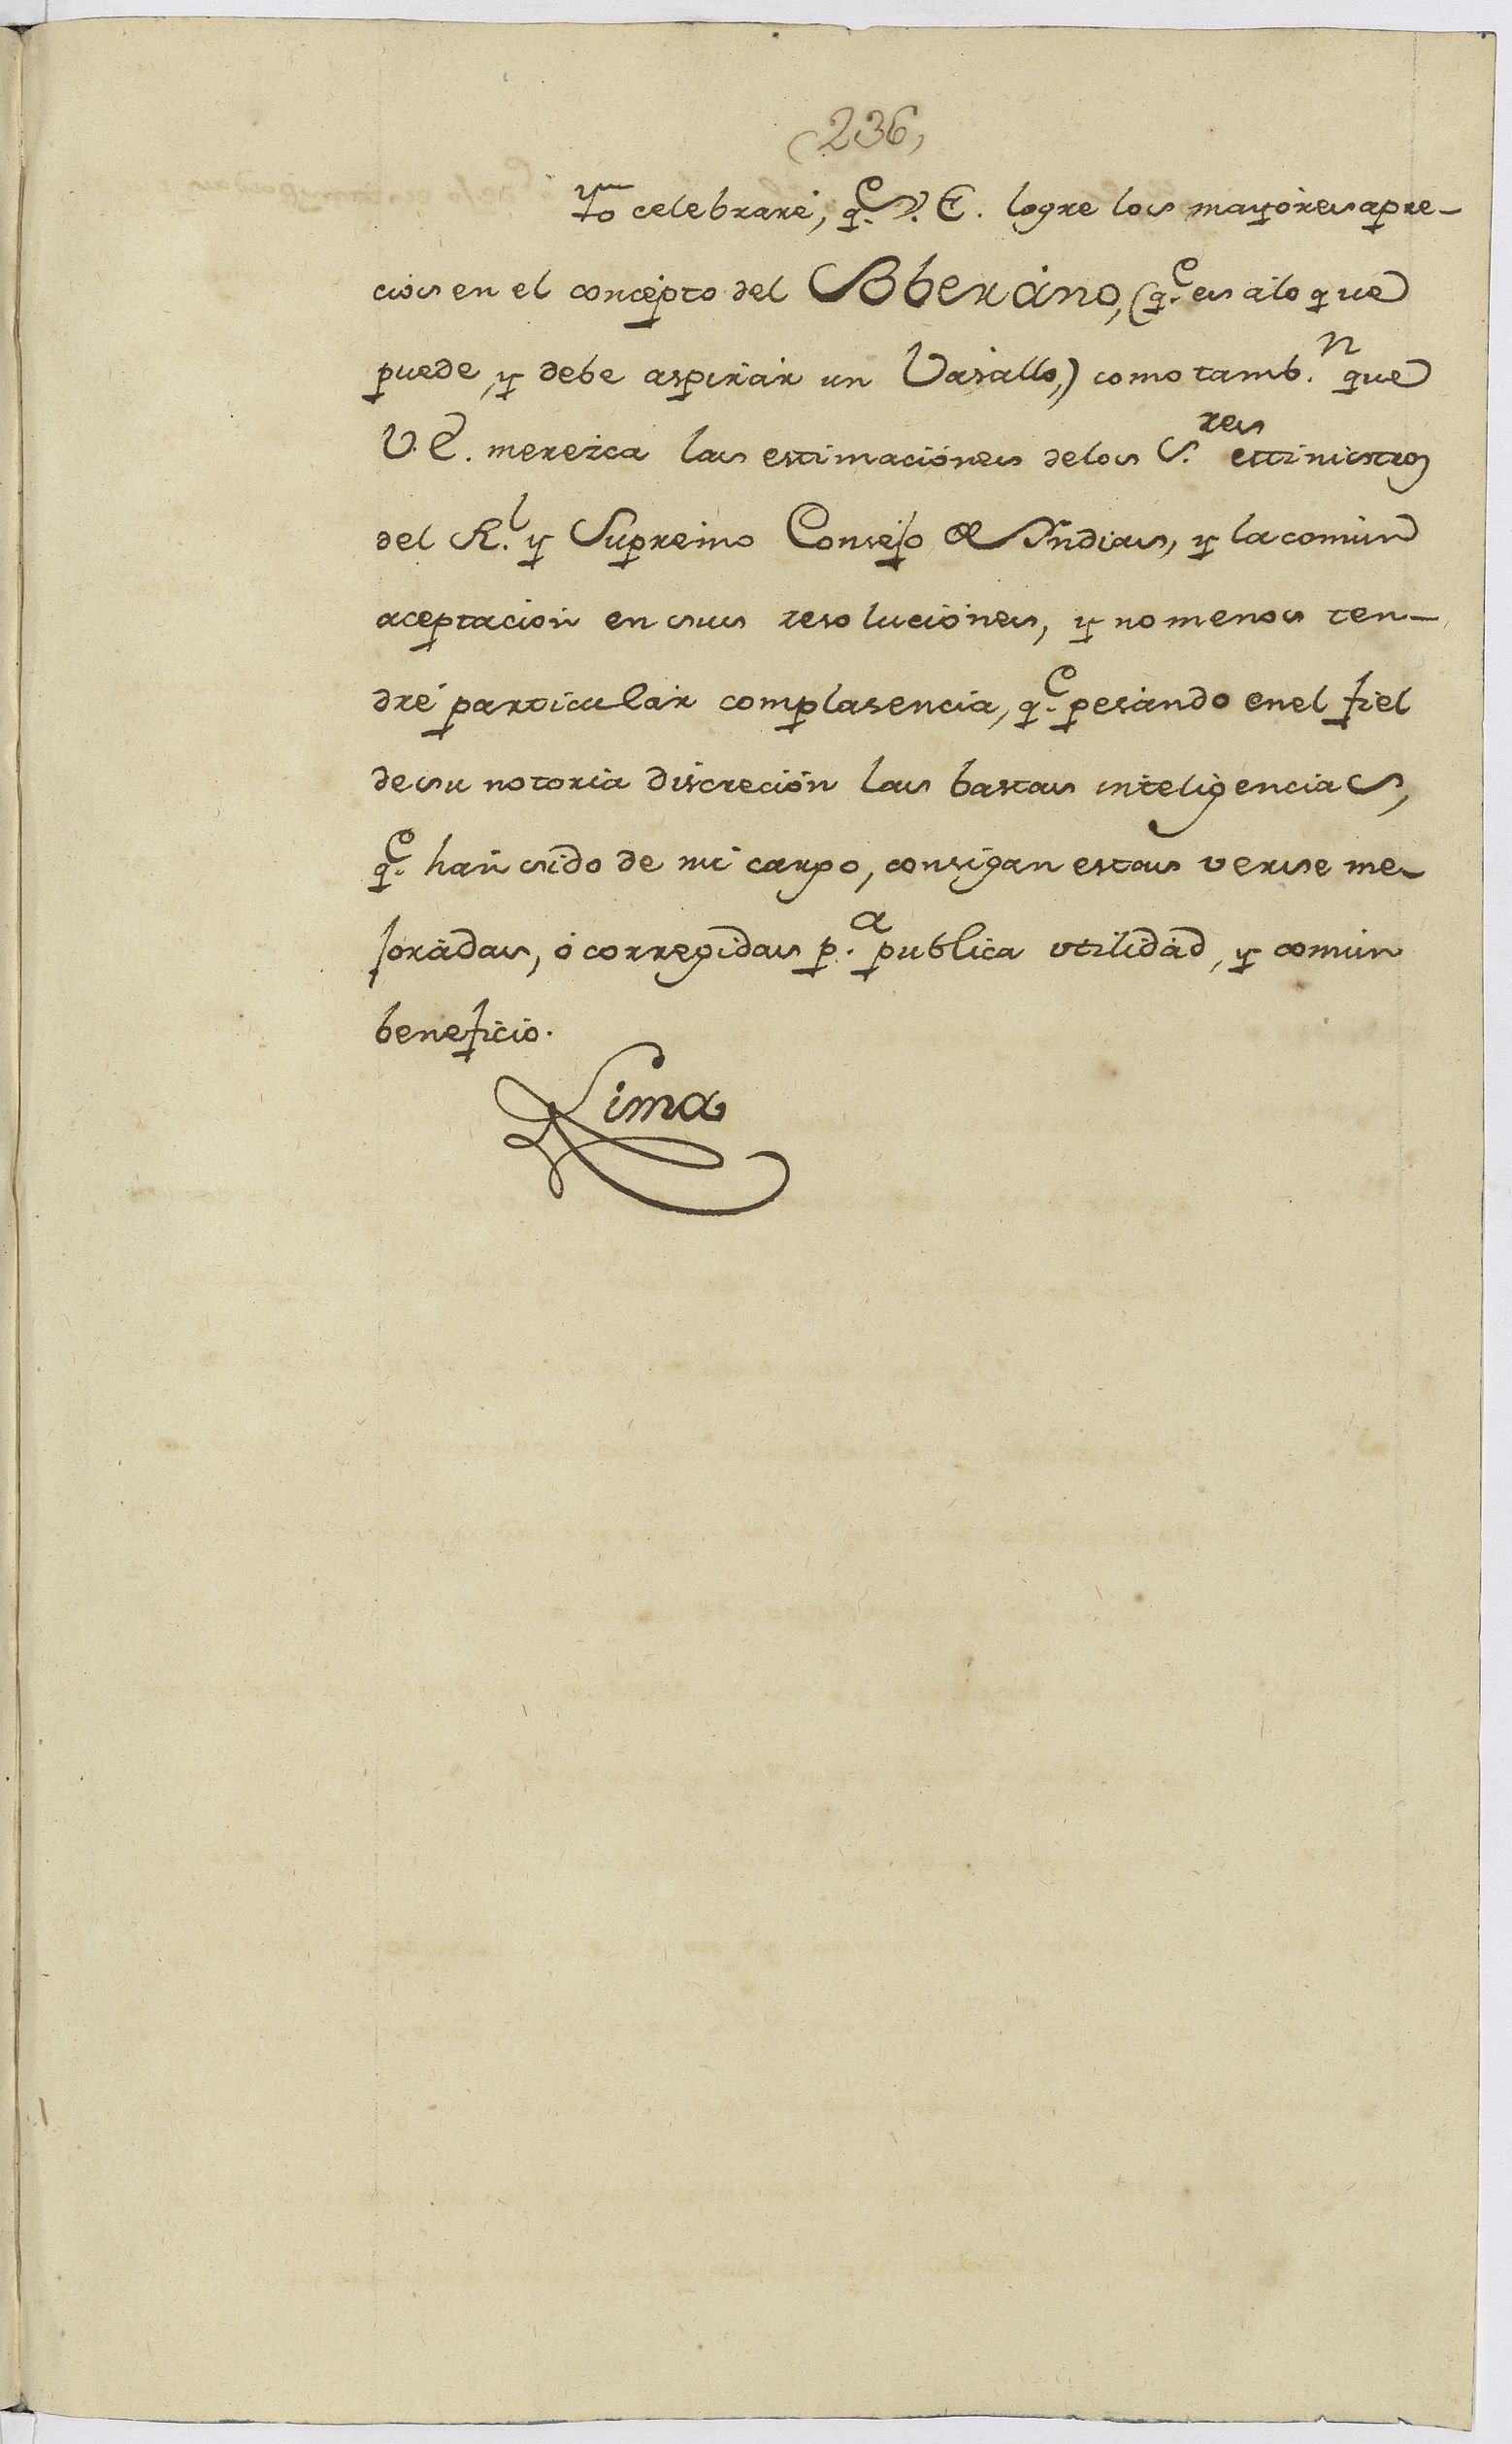 (236)
Yo celebraré, q.e V. E. logre los mayores apre-
cios en el concepto del Soberano, (q.e es a lo que
puede, y debe aspirar un Vasallo,) como tamb.n que
V. E. meresca las estimaciones de los S.res Ministros
del R.l y Supremo Consejo de Yndias, y la comun
aceptacion en sus resoluciones, y no menos ten-
dré particular complasencia, q.e pesando en el fiel
de su notoria discreción las bastas inteligencias,
q.e han sido de mi cargo, consigan estas verse me-
joradas, ó corregidas p.a publica utilidad, y comun
beneficio.
Lima